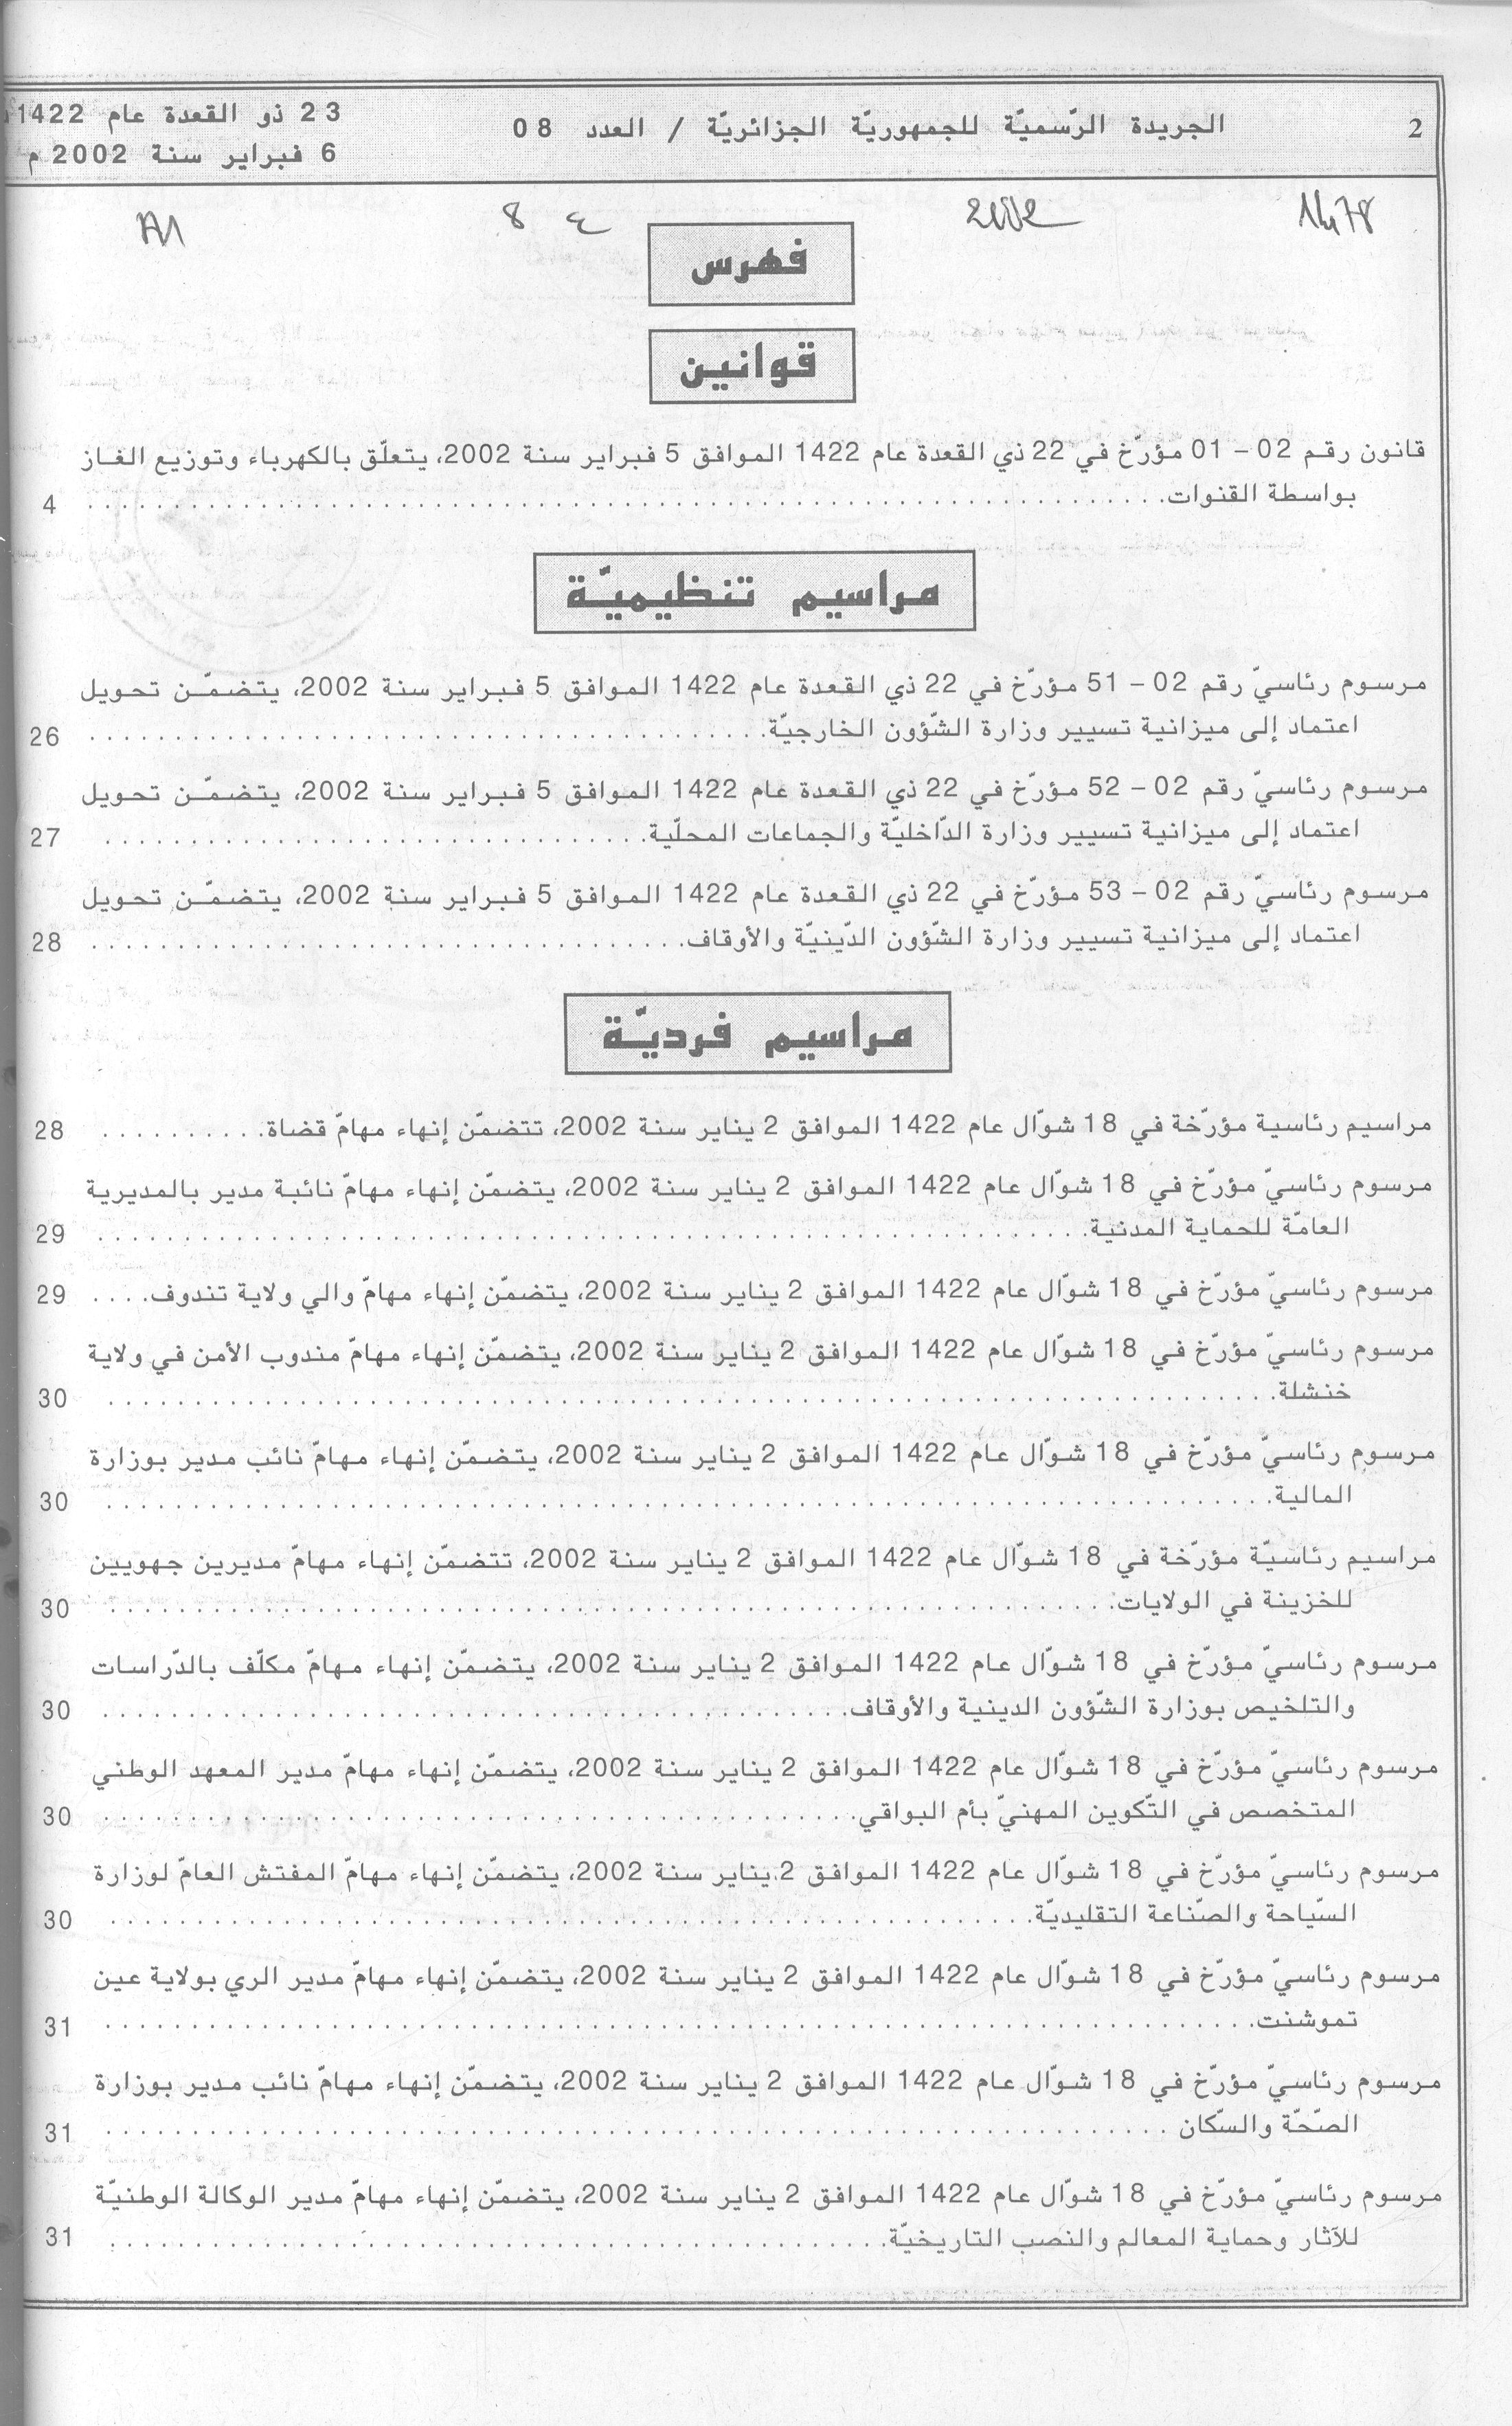 2
الجريدة الرّسميّة للجمهوريّة الجزائريّة / العدد 08
23 ذو القعدة عام 1422
6 فبراير سنة 2002 م
1478 2002 ع 8 A1
فهرس
قوانين
قانون رقم 02 – 01 مؤرّخ في 22 ذي القعدة عام 1422 الموافق 5 فبراير سنة 2002، يتعلّق بالكهرباء وتوزيع الغاز
بواسطة القنوات. . . . . . . . . . 4
مراسيم تنظيميّة
مرسوم رئاسيّ رقم 02 – 51 مؤرّخ في 22 ذي القعدة عام 1422 الموافق 5 فبراير سنة 2002، يتضمّن تحويل
اعتماد إلى ميزانية تسيير وزارة الشّؤون الخارجيّة. . . . . . . . . . 26
مرسوم رئاسيّ رقم 02 – 52 مؤرّخ في 22 ذي القعدة عام 1422 الموافق 5 فبراير سنة 2002، يتضمّن تحويل
اعتماد إلى ميزانية تسيير وزارة الدّاخليّة والجماعات المحلّية. . . . . . . . . . 27
مرسوم رئاسيّ رقم 02 – 53 مؤرّخ في 22 ذي القعدة عام 1422 الموافق 5 فبراير سنة 2002، يتضمّن تحويل
اعتماد إلى ميزانية تسيير وزارة الشّؤون الدّينيّة والأوقاف. . . . . . . . . . 28
مراسيم فرديّة
مراسيم رئاسية مؤرّخة في 18 شوّال عام 1422 الموافق 2 يناير سنة 2002، تتضمّن إنهاء مهامّ قضاة. . . . . . . . . . 28
مرسوم رئاسيّ مؤرّخ في 18 شوّال عام 1422 الموافق 2 يناير سنة 2002، يتضمّن إنهاء مهامّ نائبة مدير بالمديرية
العامّة للحماية المدنية. . . . . . . . . . 29
مرسوم رئاسيّ مؤرّخ في 18 شوّال عام 1422 الموافق 2 يناير سنة 2002، يتضمّن إنهاء مهامّ والي ولاية تندوف. . . . . 29
مرسوم رئاسيّ مؤرّخ في 18 شوّال عام 1422 الموافق 2 يناير سنة 2002، يتضمّن إنهاء مهامّ مندوب الأمن في ولاية
خنشلة. . . . . . . . . . 30
مرسوم رئاسيّ مؤرّخ في 18 شوّال عام 1422 الموافق 2 يناير سنة 2002، يتضمّن إنهاء مهامّ نائب مدير بوزارة
المالية. . . . . . . . . . 30
مراسيم رئاسيّة مؤرّخة في 18 شوّال عام 1422 الموافق 2 يناير سنة 2002، تتضمّن إنهاء مهامّ مديرين جهويين
للخزينة في الولايات. . . . . . . . . . 30
مرسوم رئاسيّ مؤرّخ في 18 شوّال عام 1422 الموافق 2 يناير سنة 2002، يتضمّن إنهاء مهامّ مكلّف بالدّراسات
والتلخيص بوزارة الشّؤون الدينية والأوقاف. . . . . . . . . . 30
مرسوم رئاسيّ مؤرّخ في 18 شوّال عام 1422 الموافق 2 يناير سنة 2002، يتضمّن إنهاء مهامّ مدير المعهد الوطني
المتخصص في التّكوين المهنيّ بأم البواقي. . . . . . . . . . 30
مرسوم رئاسيّ مؤرّخ في 18 شوّال عام 1422 الموافق 2 يناير سنة 2002، يتضمّن إنهاء مهامّ المفتش العامّ لوزارة
السّياحة والصّناعة التقليديّة. . . . . . . . . . 30
مرسوم رئاسيّ مؤرّخ في 18 شوّال عام 1422 الموافق 2 يناير سنة 2002، يتضمّن إنهاء مهامّ مدير الري بولاية عين
تموشنت. . . . . . . . . . 31
مرسوم رئاسيّ مؤرّخ في 18 شوّال عام 1422 الموافق 2 يناير سنة 2002، يتضمّن إنهاء مهامّ نائب مدير بوزارة
الصّحّة والسّكان . . . . . . . . . . 31
مرسوم رئاسيّ مؤرّخ في 18 شوّال عام 1422 الموافق 2 يناير سنة 2002، يتضمّن إنهاء مهامّ مدير الوكالة الوطنيّة
للآثار وحماية المعالم والنصب التاريخيّة. . . . . . . . . . 31